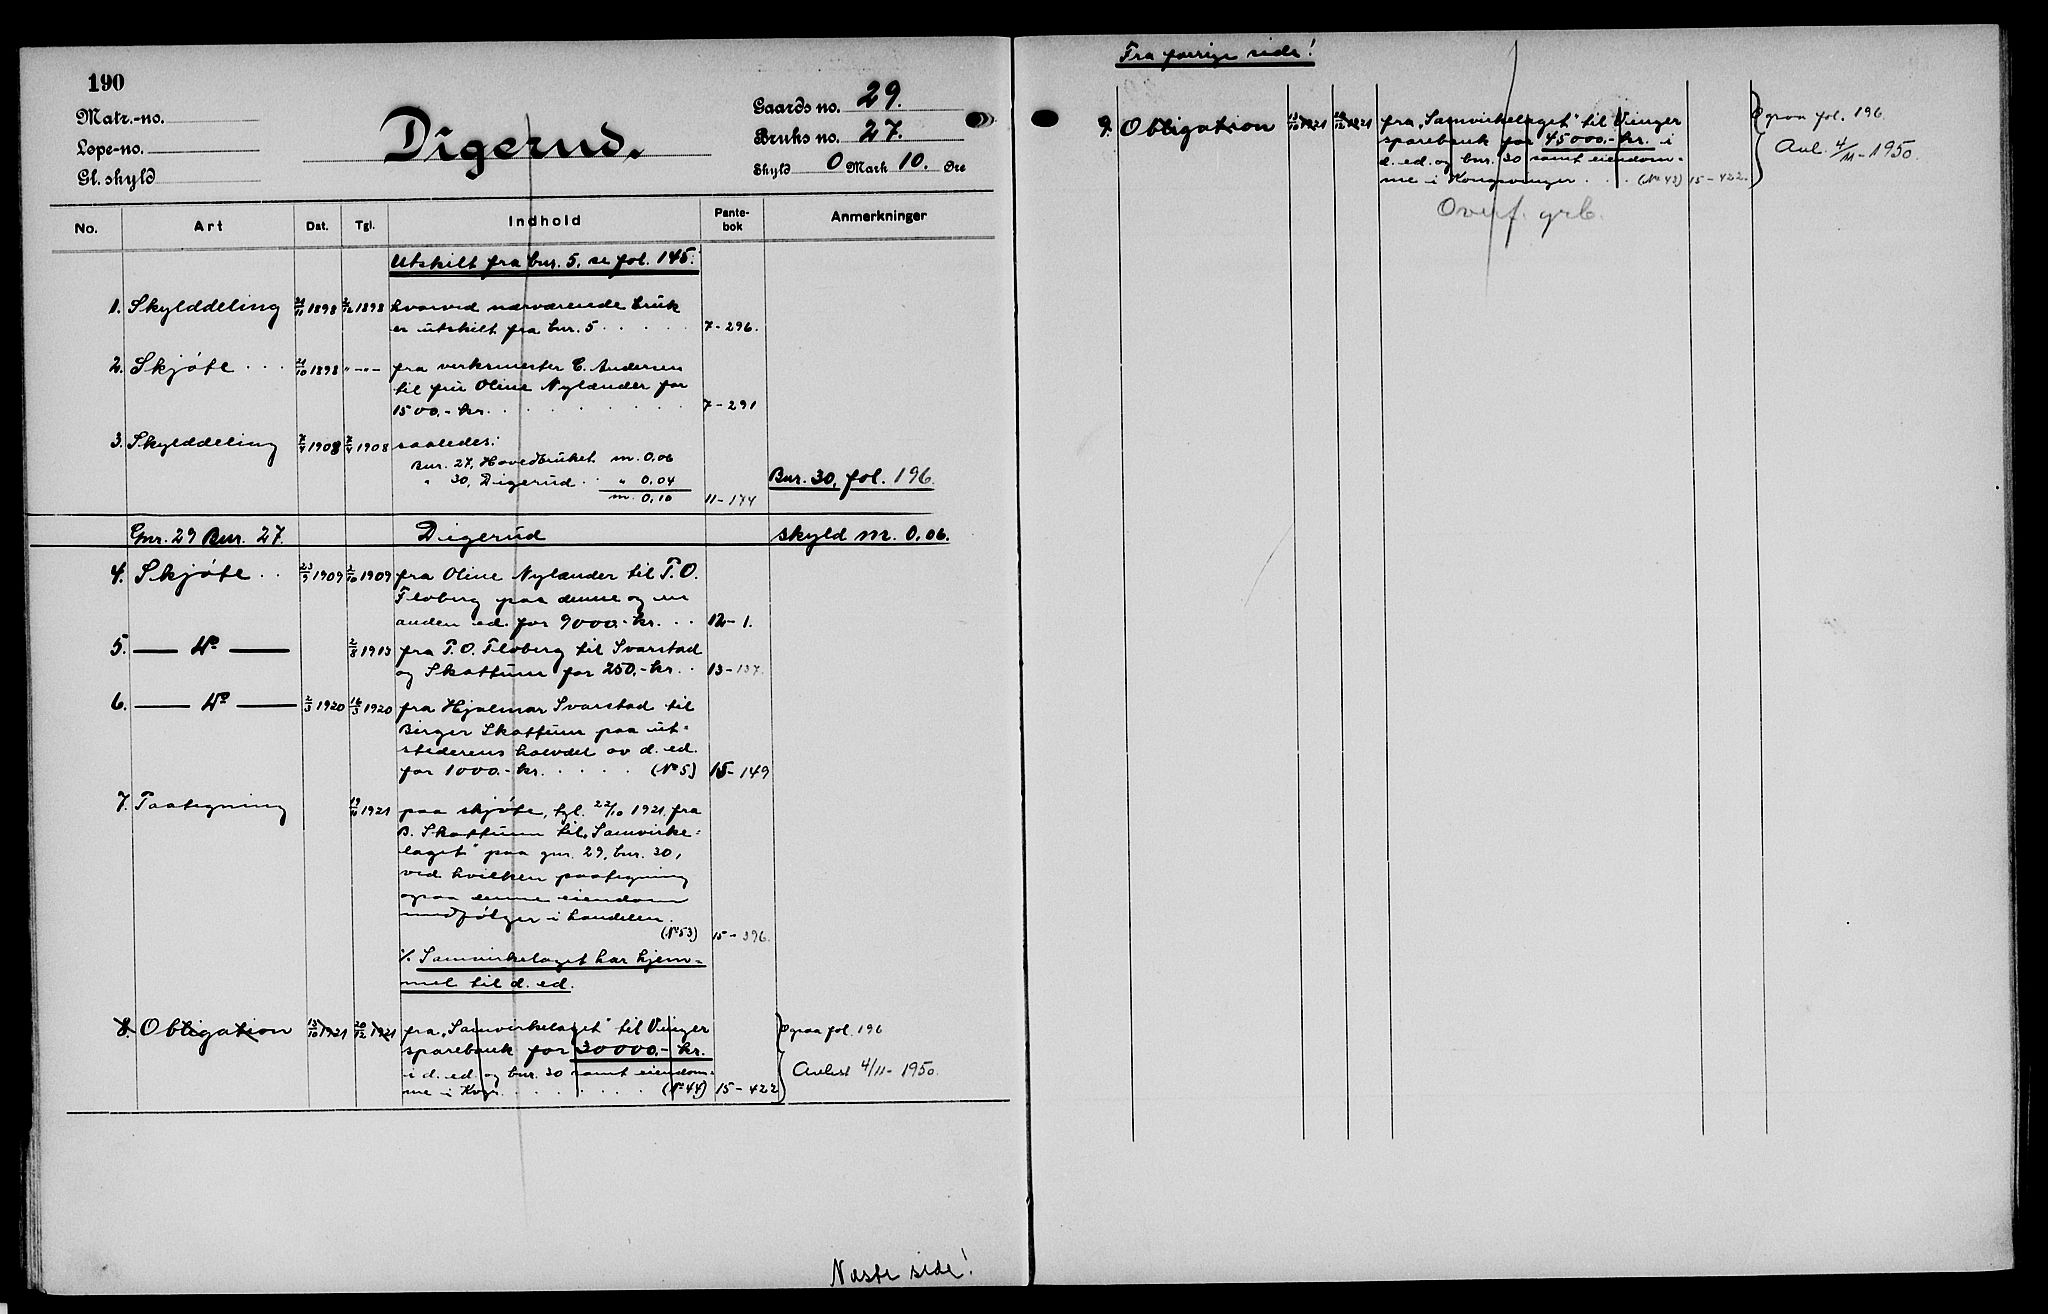 190
Matr.-no.
Løpe-no.
Gl. skyld
Digerud.
Gaards no. 29.
Bruks no. 27.
Skyld 0 Mark 10. Øre
No. Art Dat. Tgl. Indhold Pante-bok Anmerkninger
Utskilt fra bnr. 5, se fol. 145.
1. Skylddeling 1898 1898 hvorved nærværende bruk
er utskilt fra bnr. 5 . . . . . 7-296.
2. Skjøte . . . 1898 " -"- fra verksmester C. Andersen
til fru Oline Nylænder for
1500.- kr. . . . . . . . 7-291
3. Skylddeling 1908 1908 saaledes:
Bnr. 27, Hovedbruket m. 0,06
" 30, Digerud . . " 0,04 Bnr. 30, fol. 196.
m. 0,10 11-174
Gnr. 29 Bnr. 27. Digerud skyld m. 0,06.
4. Skjøte . . 23/9 1909 1/10 1909 fra Oline Nylænder til T. O.
Floberg paa denne og en
anden ed. for 9000.- kr. . . 12-1.
5. — do — 2/8 1913 fra T. O. Floberg til Svarstad
og Skattum for 250.- kr. . 13-137.
6. — do — 2/3 1920 16/3 1920 fra Hjalmar Svarstad til
Birger Skattum paa ut-
stederens halvdel av d. ed.
for 1000.- kr. . . . . . (No 5) 15-149
7. Paategning 1921 paa skjøte, tgl. 22/10 1921, fra
B. Skattum til "Samvirke-
laget" paa gnr. 29, bnr. 30,
ved hvilken paategning
ogsaa denne eiendom
medfølger i handelen.
(No 53) 15-396.
%. Samvirkelaget har hjem-
mel til d. ed.
8. Obligation 13/10 1921 20/12 1921 fra "Samvirkelaget" til Vinger Ogsaa fol. 196
sparebank for 30000.- kr.
i d. ed. og bnr. 30 samt eiendom- Avlest 4/11-1950.
me i Kgv. . . . . . . . (No 44) 15-422
Næste side!
Fra forrige side!
9. Obligation 13/10 1921 20/12 1921 fra "Samvirkelaget" til Vinger Ogsaa fol. 196.
sparebank for 45000.- kr. i
Avl. 4/11-1950.
d. ed. og bnr. 30 samt eiendom-
me i Kongsvinger . . . (No 43) 15-422.
Overf. grb.